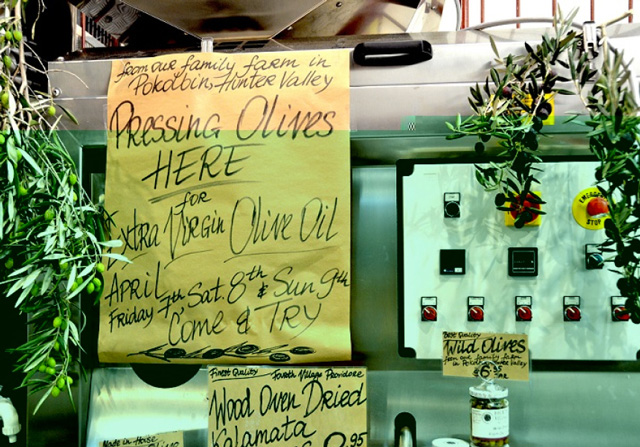 from our family farm in
Pokolbin, Hunter Valley
PRESSING OLIVES
HERE
for
EXTRA VIRGIN OLIVE OIL
APRIL
Friday 7th, Sat. 8th & Sun 9th
Come & TRY
Finest Quality Fourth Village Providore
Wood Oven Dried
Kalamata
.95
Made in House
EMERGENCY
STOP
Best Quality
Wild Olives
from our family farm
in Pokolbin Hunter Valley
$6.95